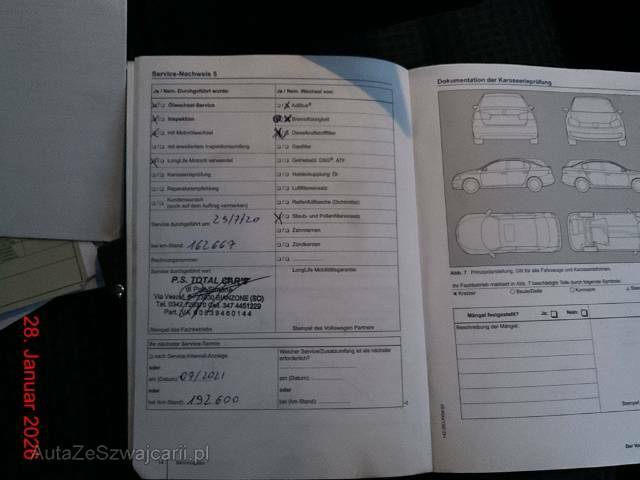 Service-Nachweis 5
Ja / Nein. Durchgeführt wurde:
Ölwechsel-Service
Inspektion
mit Motorölwechsel
mit erweitertem Inspektionsumfang
LongLife Motoröl verwendet
Karosserieprüfung
Reparaturempfehlung
Kundenwunsch
(auch auf dem Auftrag vermerken)
Service durchgeführt am: 25/7/20
bei km-Stand: 162667
Rechnungsnummer:
Service durchgeführt von:
P.S. TOTAL CAR'S
BIANZONE (SO)
Cel. 347 4451229
Part. IVA 00839460144
Stempel des Fachbetriebs
Ja / Nein. Wechsel von:
AdBlue®
Bremsflüssigkeit
Dieselkraftstofffilter
Gasfilter
Getriebeöl DSG®, ATF
Haldexkupplung Öl
Luftfiltereinsatz
Reifenfüllflasche (Dichtmittel)
Staub- und Pollenfiltereinsatz
Zahnriemen
Zündkerzen
LongLife Mobilitätsgarantie
Stempel des Volkswagen Partners
Ihr nächster Service-Termin:
nach Service-Intervall-Anzeige
oder
am (Datum): 09/2021
oder
bei (km-Stand): 192600
Welcher Service/Zusatzumfang ist als nächster
erforderlich?
am (Datum):
oder
bei (km-Stand):
Dokumentation der Karosserieprüfung
Abb. 7 Prinzipdarstellung, Gilt für alle Fahrzeuge und Karosserieformen.
Ihr Fachbetrieb markiert in Abb. 7 beschädigte Teile durch folgende Symbole:
Kratzer
Beule/Delle
Korrosion
Mängel festgestellt? Ja: Nein:
Beschreibung der Mängel:
Stempel
28. Januar 2026
AutaZeSzwajcarii.pl